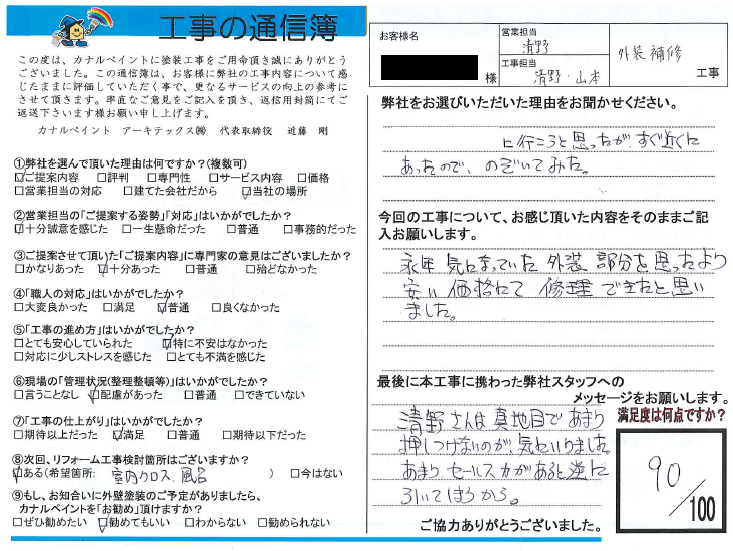 工事の通信簿
この度は、カナルペイントに塗装工事をご用命頂き誠にありがとう
ございました。この通信簿は、お客様に弊社の工事内容について感
じたままに評価していただく事で、更なるサービスの向上の参考に
させて頂きます。率直なご意見をご記入を頂き、返信用封筒にてご
返送下さいます様お願い申し上げます。
カナルペイント アーキテックス㈱ 代表取締役 近藤 剛
①弊社を選んで頂いた理由は何ですか?(複数可)
☑ご提案内容 □評判 □専門性 □サービス内容 □価格
□営業担当の対応 □建てた会社だから ☑当社の場所
②営業担当の「ご提案する姿勢」「対応」はいかがでしたか?
☑十分誠意を感じた □一生懸命だった □普通 □事務的だった
③ご提案させて頂いた「ご提案内容」に専門家の意見はございましたか?
□かなりあった ☑十分あった □普通 □殆どなかった
④「職人の対応」はいかがでしたか?
□大変良かった □満足 ☑普通 □良くなかった
⑤「工事の進め方」はいかがでしたか?
□とても安心していられた ☑特に不安はなかった
□対応に少しストレスを感じた □とても不満を感じた
⑥現場の「管理状況(整理整頓等)」はいかがでしたか?
□言うことなし ☑配慮があった □普通 □できていない
⑦「工事の仕上がり」はいかがでしたか?
□期待以上だった ☑満足 □普通 □期待以下だった
⑧次回、リフォーム工事検討箇所はございますか?
☑ある(希望箇所: 室内クロス、風呂 ) □今はない
⑨もし、お知合いに外壁塗装のご予定がありましたら、
カナルペイントを「お勧め」頂けますか?
□ぜひ勧めたい ☑勧めてもいい □わからない □勧められない
お客様名
様
営業担当
清野
工事担当
清野・山本
外装補修
工事
弊社をお選びいただいた理由をお聞かせください。
に行こうと思ったが、すぐ近くに
あったので、のぞいてみた。
今回の工事について、お感じ頂いた内容をそのままご記
入お願いします。
永年 気になっていた 外装 部分を思ったより
安い 価格にて 修理 できたと思い
ました。
最後に本工事に携わった弊社スタッフへの
メッセージをお願いします。
清野さんは真地目であまり
押しつけないのが、気にいりました。
あまり、セールス力があると逆に
引いてしまうから。
満足度は何点ですか?
90/100
ご協力ありがとうございました。